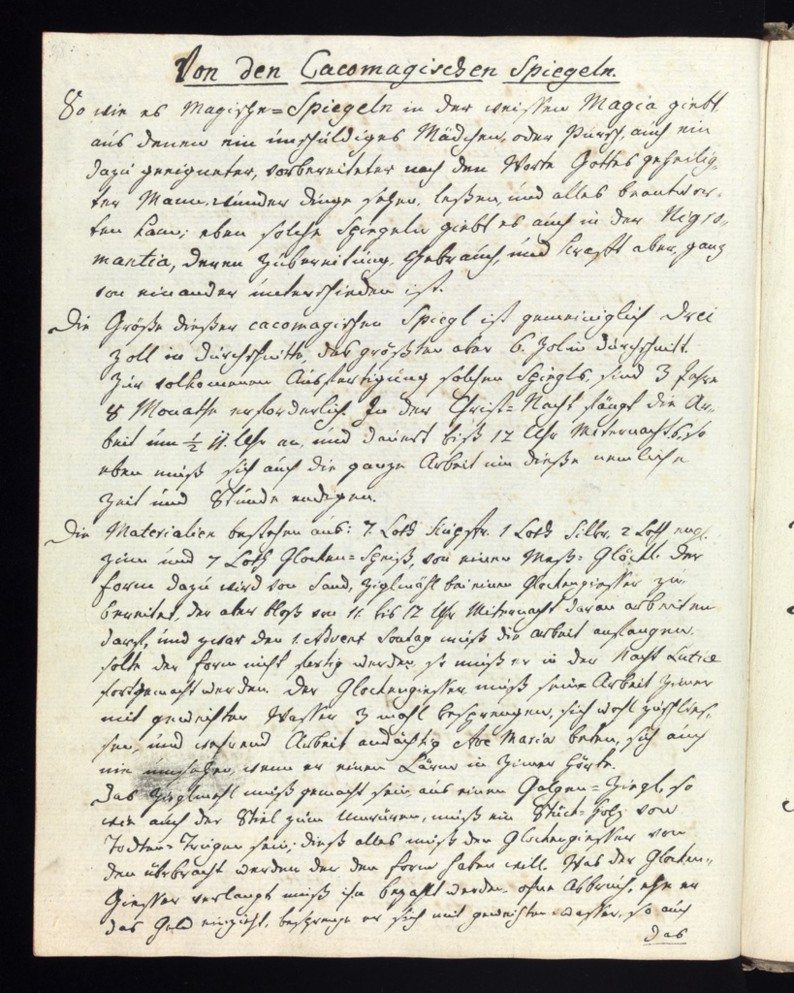 Von den Cacomagischen Spiegeln.
So wie es Magische=Spiegeln in der weissen Magia giebt
aus denen ein unschuldiges Mädchen, oder Pursch, auch ein
dazu geeigneter, vorbereiteter nach den Worte Gottes geheilig-
ter Mann, wunder dinge sehen, lesßen, und alles beantwor-
ten kann; eben solche Spiegeln giebt es auch in der Nigro-
mantia, deren Zubereitung, Gebrauch, und Krafft aber, ganz
von einander unterschieden ist.
Die Größe dießer cacomagischen Spiegl ist gemeiniglich drei
Zoll in durchschnitte, das größten aber 6. Zol in durchschnitt.
Zur volkomenen Ausfertigung solchen Spiegls, sind 3 Jahre
8 Monathe erforderlich. In der Christ=Nacht fängt die Ar-
beit um ½ 11. Uhr an, und dauert biß 12 Uhr Miternachts, so
eben muß sich auch die ganze Arbeit um dieße nemliche
Zeit und Stunde endigen.
Die Materialien bestehen aus: 7. Loth Kupfr. 1 Loth Silbr. 2 Loth engl.
zinn und 7 Loth Glocken=Speiß, von einen Meß=Glöckl. Der
form dazu wird von Sand, Ziglmehl bei einen Glockengiesser zu-
bereitet, der aber bloß von 11. bis 12 Uhr Miternacht daran arbeiten
darf, und zwar den 1. Advent Sontag muß die arbeit anfangen.
solte der form nicht fertig werden, so muß er in der Nacht Lutzie
fortgemacht werden. Der Glockengiesser muß seine Arbeit Zimer
mit geweihten Wasser 3 mahl besprengen, sich wohl zuschlies-
sen, und wehrend Arbeit andächtig Ave Maria beten, sich auch
nie umsehen, wenn er einen Lärm in Zimer hörte.
Das Zieglmehl muß gemacht sein aus einen Galgen=Ziegl, so
wie auch der Stiel zum Umrüren, muß ein Stück=holz von
Todten=Trugen sein; dieß alles muß den Glockengiesser von
den übrbracht werden der den form haben will. Was der Glocken-
Giesser verlangt muß ihm bezahlt werden, ohne Abbruch, ehe er
das Geld einzieht, besprenge er sich mit geweihten wasser, so auch
das